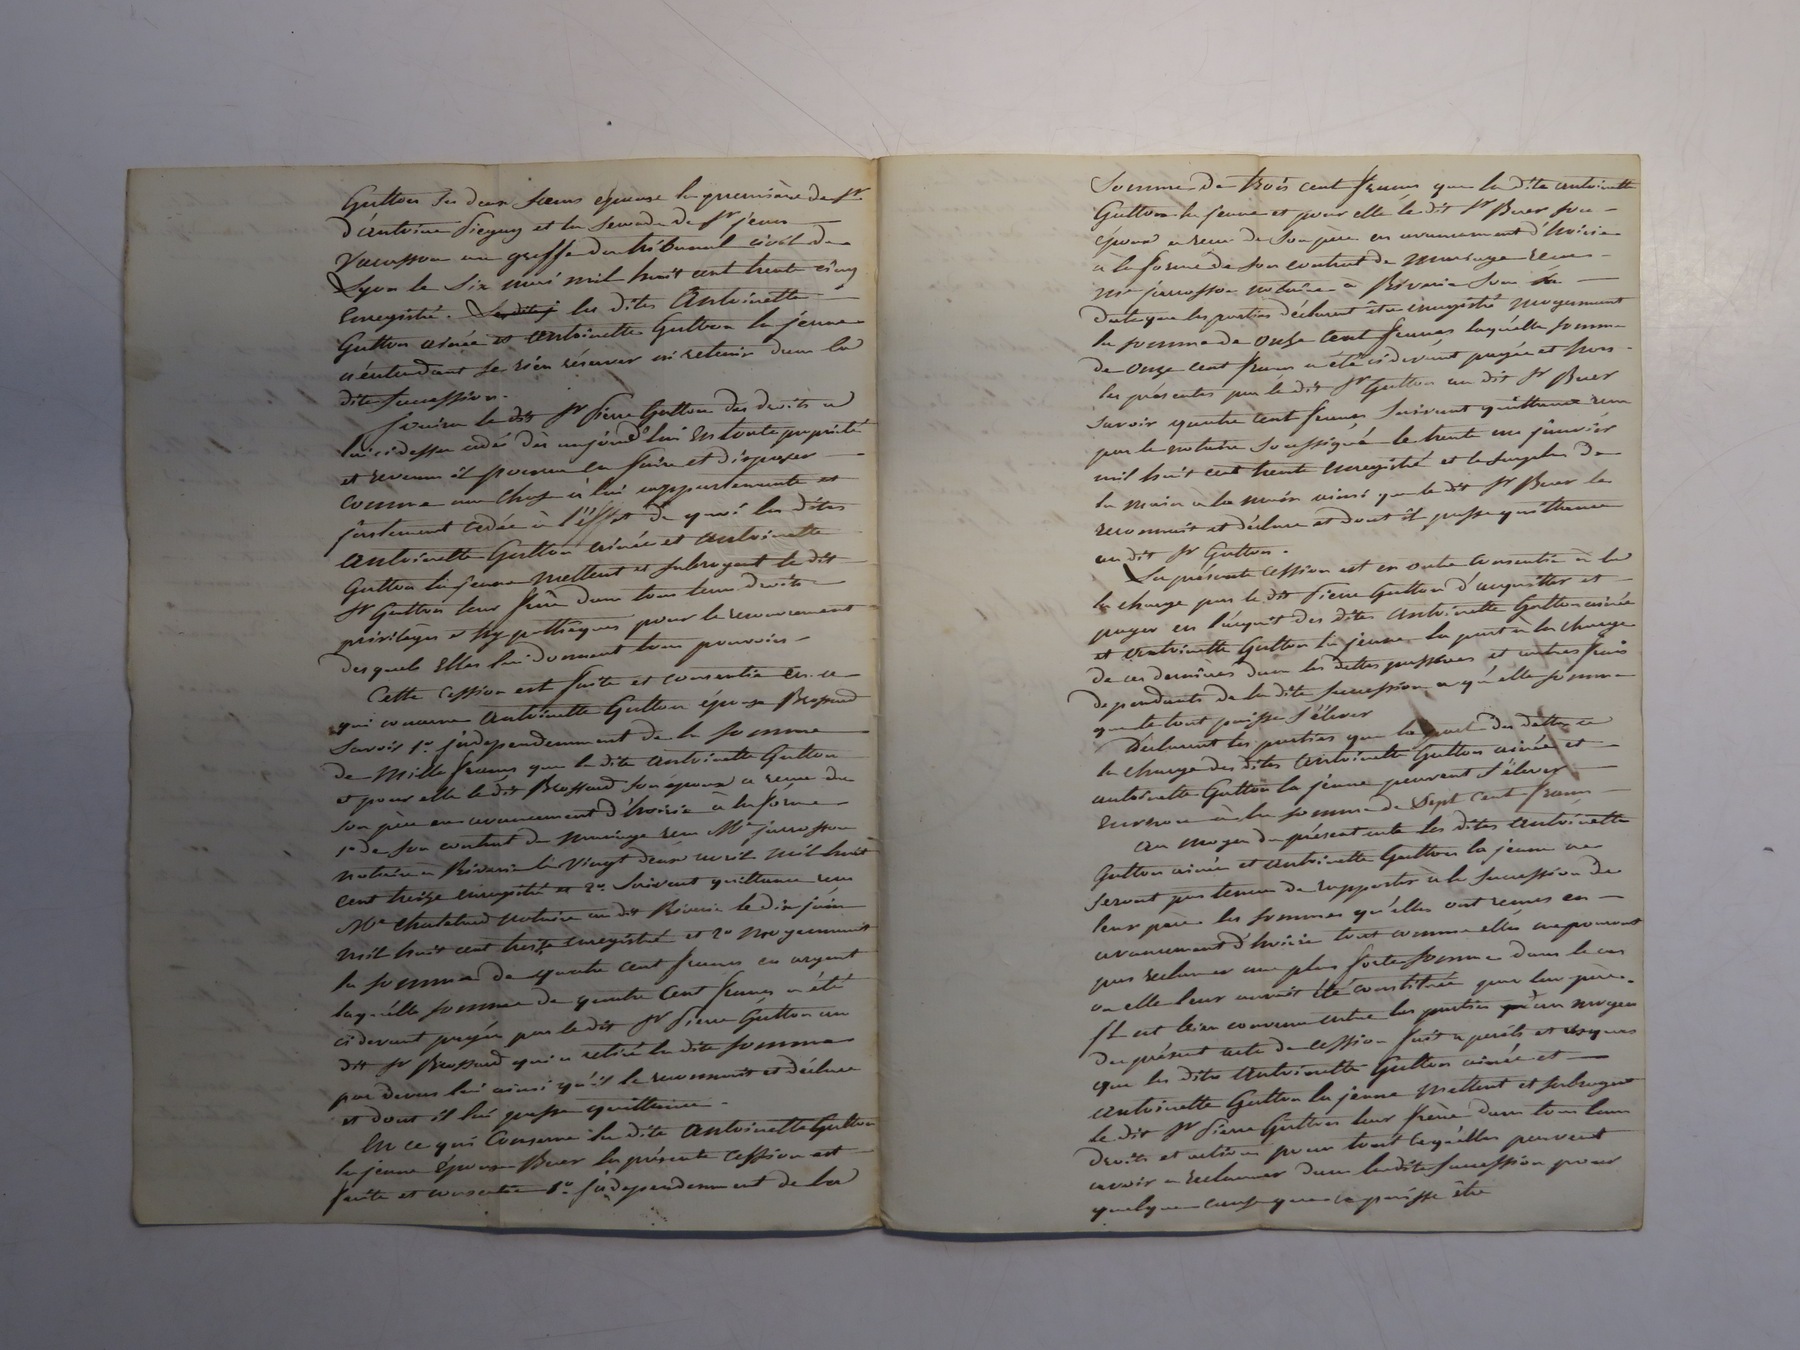 Gutton ses deux sœurs épouse la première de Sr
d'Antoine Piegay et la seconde de Sr jean
Vaucsson au greffe du tribunal civil de
Lyon le Six mai mil huit cent trente cinq
Enregistré. les dites Antoinette
Gutton ainée et Antoinette Gutton la jeune
n'entendant se rien réserver ni retenir dans la
dite succession.
Jouira le dit Sr Pierre Gutton des droits a
lui ci dessus cédés dès aujourd'hui en toute propriété
et revenu il pourra en faire et disposer
comme une chose à lui appartenante et
justement cédée à l'effet de quoi les dites
Antoinette Gutton ainée et Antoinette
Gutton la jeune mettent et subrogent le dit
Sr Gutton leur frère dans tous leurs droits
privilèges et hypothèques pour le recouvrement
desquels Elles lui donnent tous pouvoirs
Cette cession est faite et consentie en ce
qui concerne Antoinette Gutton épouse Brossard
Savoir 1º jndependemment de la somme
de Mille francs que la dite Antoinette Gutton
et pour elle le dit Brossard son époux a reçue de
son père en avancement d'hoirie à la forme
1º de son contrat de mariage reçu Me jarrosson
notaire à Riverie le Vingt deux avril mil huit
cent treize enregistré et 2º Suivant quittance reçue
Me Chatelard notaire au dit Riverie le dix juin
mil huit cent treize enregistré et 2º Moyennant
la somme de quatre cent francs en argent
laquelle somme de quatre cent francs a été
ci devant payée par le dit Sr Pierre Gutton au
dit Sr Brossard qui a retiré la dite somme
par devers lui ainsi qu'il le reconnait et déclare
et dont il lui passe quittance.
En ce qui Concerne la dite Antoinette Gutton
la jeune épouse Buer la présente Cession est
faite et consentie 1º jndependemment de la
Somme de trois cent francs que la dite Antoinette
Gutton la jeune et pour elle le dit Sr Buer son
époux a reçue de son père en avancement d'hoirie
à la forme de son contrat de mariage reçu
Me jarrosson notaire à Riverie sous sa
date que les parties déclarent être enregistré moyennant
la somme de onze cent francs laquelle somme
de onze cent francs a été ci devant payée et hors
les présentes par le dit Sr Gutton au dit Sr Buer
Savoir quatre cent francs suivant quittance reçue
par le notaire soussigné le trente un janvier
mil huit cent trente enregistré et le surplus de
la main à la main ainsi que le dit Sr Buer le
reconnait et déclare et dont il passe quittance
au dit Sr Gutton.
La présente cession est en outre consentie à la
la charge par le dit Pierre Gutton d'acquitter et
payer en l'acquit des dites Antoinette Gutton ainée
et Antoinette Gutton la jeune la part à la charge
de ces dernières dans les dettes passives et autres frais
dependants de la dite succession a qu'elle somme
que le tout puisse s'élever
Déclarent les parties que la part des dettes à
la charge des dites Antoinette Gutton ainée et
Antoinette Gutton la jeune peuvent s'élever
Environ à la somme de Sept cent francs
Au moyen du présent acte les dites Antoinette
Gutton ainée et Antoinette Gutton la jeune ne
seront pas tenues de rapporter à la succession de
leur père les sommes qu'elles ont reçues en
avancement d'hoirie tout comme elles ne pourront
pas reclamer une plus forte somme dans le cas
où elle leur auroit été constituée par leur père.
Il est bien convenu entre les parties qu'au moyen
du présent acte de cession fait a périls et risques
que les dites Antoinette Gutton ainée et
Antoinette Gutton la jeune Mettent et subrogent
le dit Sr Pierre Gutton leur frère dans tous leurs
droits et actions pour tout ce qu'elles peuvent
avoir a reclamer dans la dite succession pour
quelque cause que ce puisse être